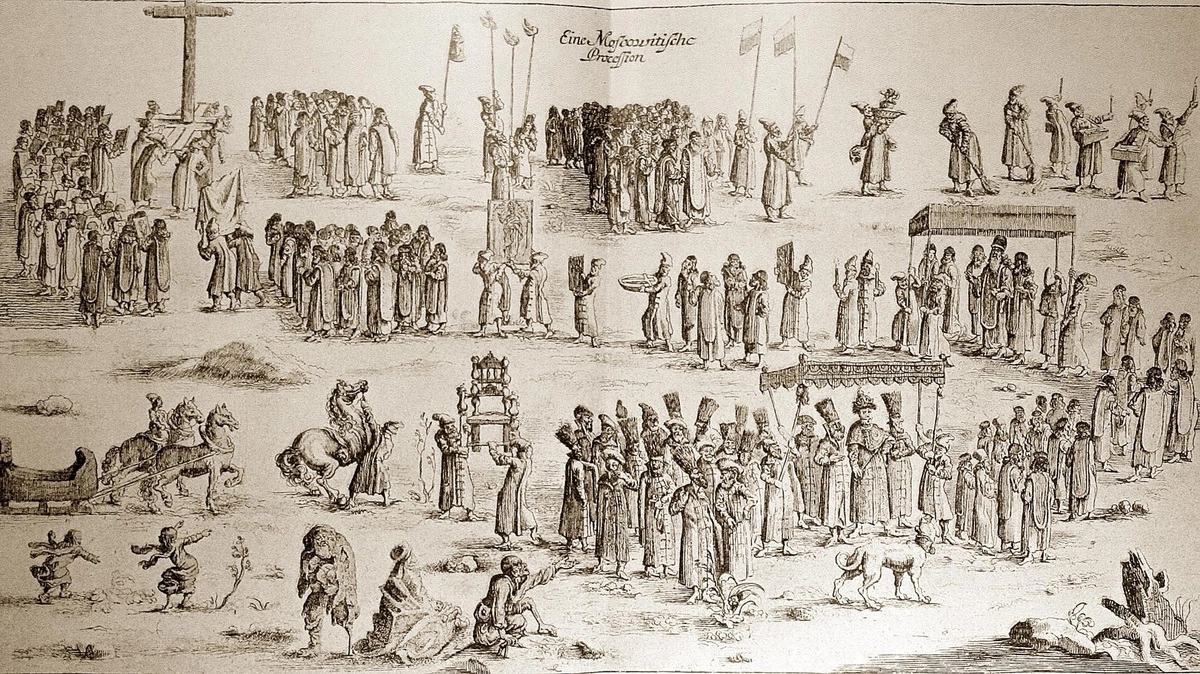 Eine Moscowitische
Procession